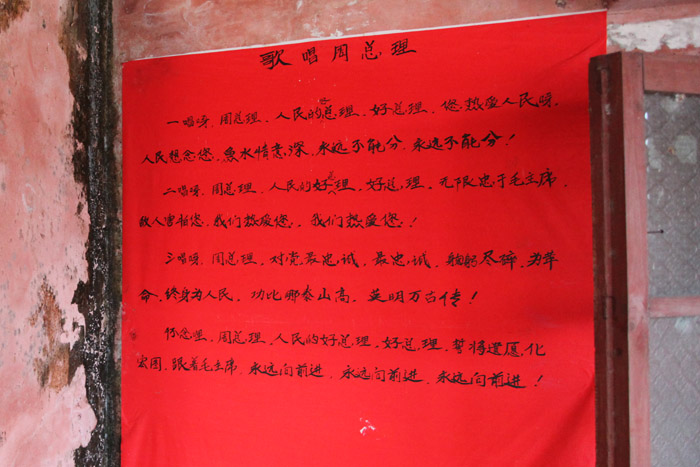 歌唱周总理
一唱呀，周总理，人民的总理，好总理，您热爱人民呀，
人民想念您，鱼水情意深，永远不能分，永远不能分！
二唱呀，周总理，人民的好总理，好总理，无限忠于毛主席，
敌人害怕您，我们热爱您，我们热爱您！
三唱呀，周总理，对党最忠诚，最忠诚，鞠躬尽瘁，为革
命，终身为人民，功比那泰山高，英明万古传！
怀念您，周总理，人民的好总理，好总理，誓将遗愿化
宏图，跟着毛主席，永远向前进，永远向前进，永远向前进！